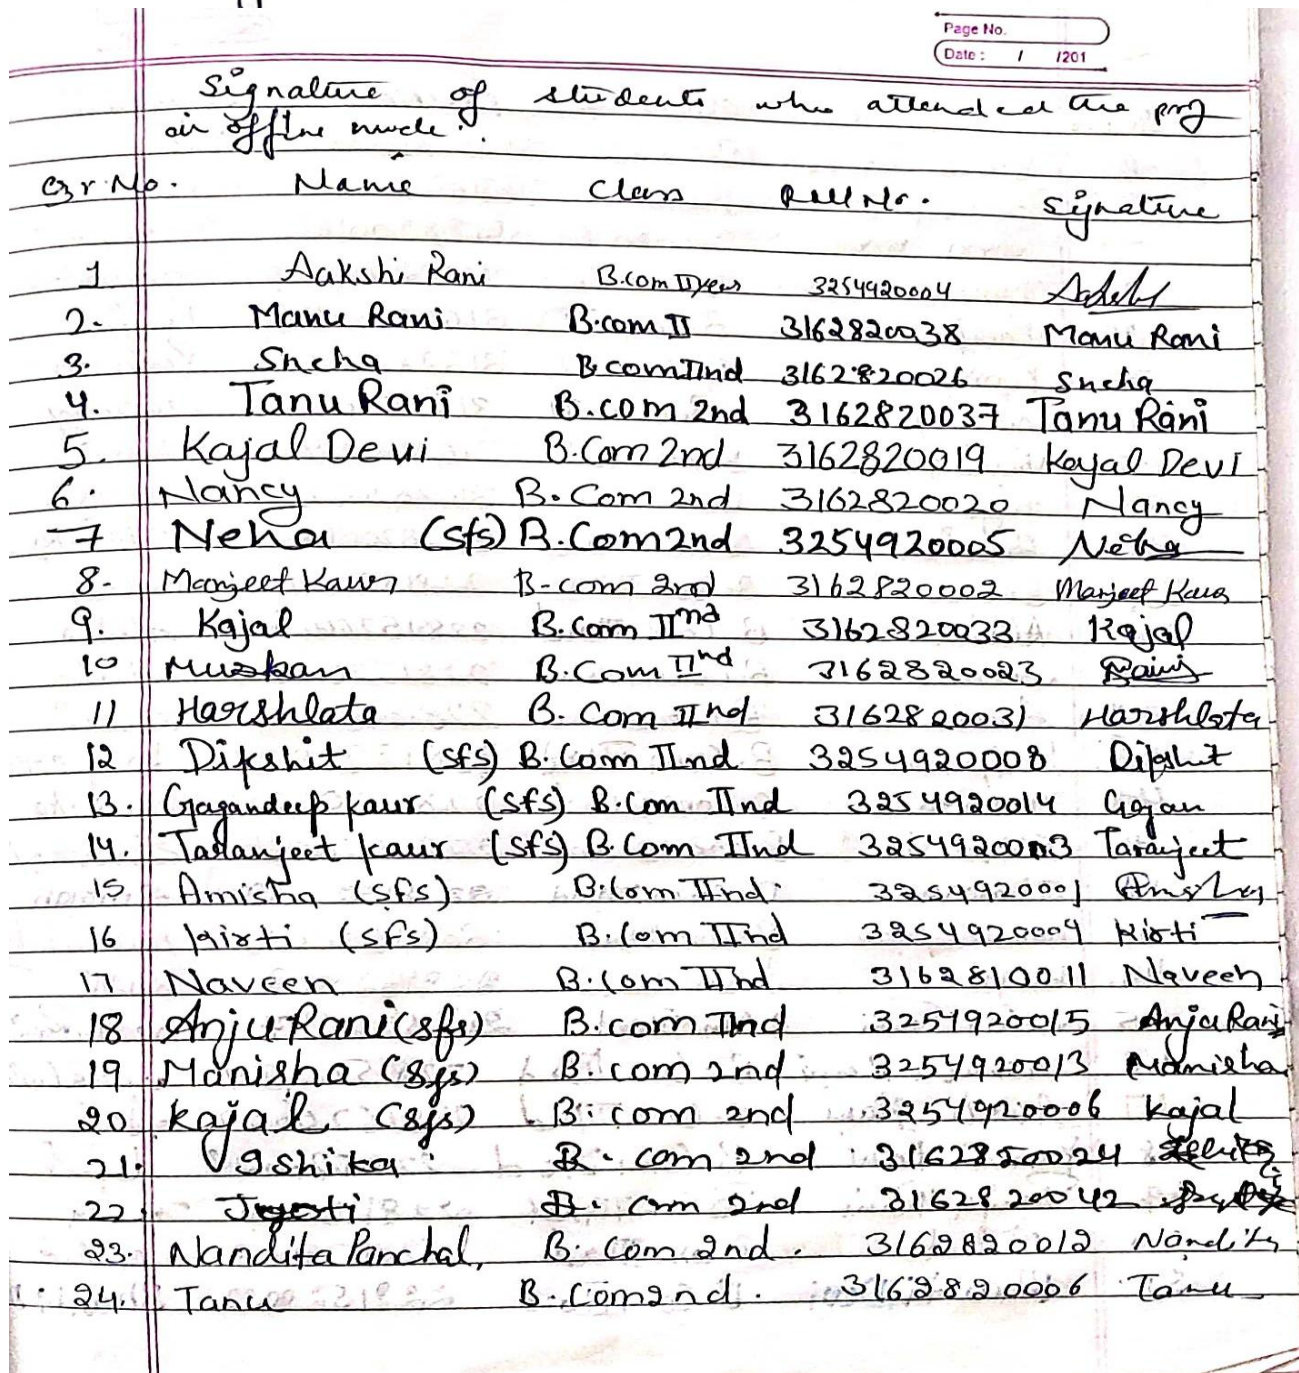 Page No.
Date : / /201
Signature of students who attended the prog
in offline mode.
Sr. No. Name Class Roll No. Signature
1 Aakshi Rani B.com II year 3254920004
2. Manu Rani B.com II 3162820038 Manu Rani
3. Sneha B.com IInd 3162820026 Sneha
4. Tanu Rani B.com 2nd 3162820037 Tanu Rani
5. Kajal Devi B.Com 2nd 3162820019 Kajal Devi
6. Nancy B. Com 2nd 3162820020 Nancy
7 Neha (sfs) B.Com 2nd 3254920005 Neha
8- Manjeet Kaur B-com 2nd 3162820002 Manjeet Kaur
9. Kajal B.com IInd 3162820033 Kajal
10 Muskan B.Com IInd 3162820023
11 Harshlata B. Com IInd 3162820031 Harshlata
12 Dikshit (sfs) B.Com IInd 3254920008 Dikshit
13. Gagandeep Kaur (sfs) B.Com IInd 3254920014 Gagan
14. Taranjeet Kaur (sfs) B.Com IInd Taranjeet
15 Amisha (sfs) B.Com IInd. 3254920001 Amisha
16 Kirti (sfs) B.Com IInd 3254920009 Kirti
17 Naveen B.Com IInd 3162810011 Naveen
18 Anju Rani (sfs) B.com IInd 3254920015 Anju Rani
19 Manisha (sfs) B.com 2nd 3254920013 Manisha
20 Kajal (sfs) B.com 2nd 3254920006 Kajal
21. Ishika B. com 2nd
22 Jyoti B. com 2nd 3162820042
23. Nandita Panchal, B. Com 2nd. 3162820012 Nandita
24. Tanu B.Com 2nd. 3162820006 Tanu